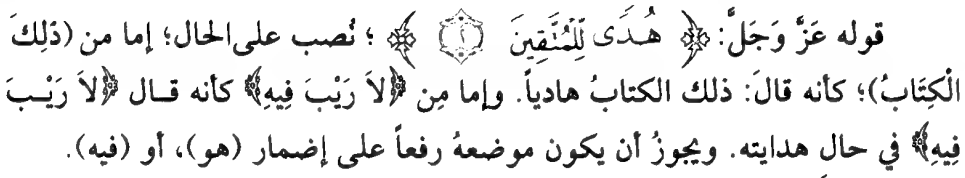 قوله عَزَّ وَجَلَّ: ﴿ هُدًى لِّلْمُتَّقِينَ ٢ ﴾ ؛ نُصب على الحال؛ إما من (ذَلِكَ
الْكِتَابُ)؛ كأنه قالَ: ذلك الكتابُ هادياً. وإما مِن ﴿لاَ رَيْبَ فِيهِ﴾ كأنه قـال ﴿لاَ رَيْـبَ
فِيهِ﴾ في حالِ هدايته. ويجوزُ أن يكون موضعهُ رفعاً على إضمار (هو)، أو (فيه).